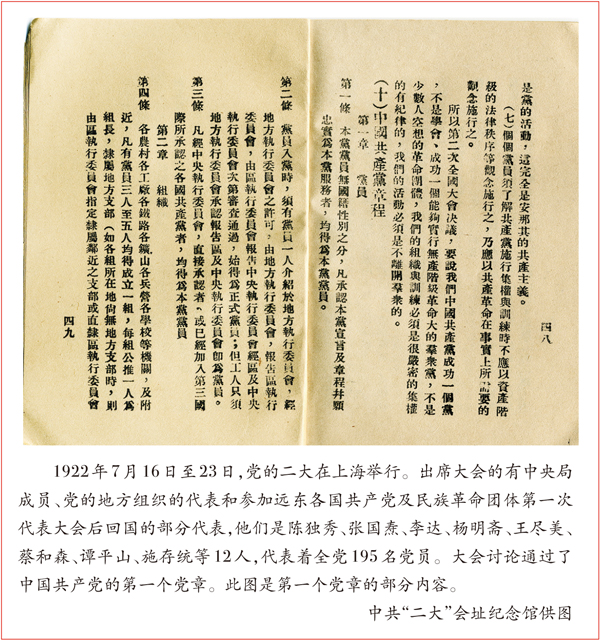 四八
是黨的活動，這完全是安那其的共產主義。
（七）個個黨員須了解共產黨施行集權與訓練時不應以資產階
級的法律秩序等觀念施行之，乃應以共產革命在事實上所需要的
觀念施行之。
所以第二次全國大會決議，要說我們中國共產黨成功一個黨
，不是學會、成功一個能夠實行無產階級革命大的羣衆黨，不是
少數人空想的革命團體，我們的組織與訓練必須是很嚴密的集權
的有紀律的，我們的活動必須是不離開羣衆的。
（十）中國共產黨章程
第一章 黨員
第一條 本黨黨員無國籍性別之分，凡承認本黨宣言及章程幷願
忠實爲本黨服務者，均得爲本黨黨員。
第二條 黨員入黨時，須有黨員一人介紹於地方執行委員會，經
地方執行委員會之許可，由地方執行委員會，報告區執行
委員會，由區執行委員會報告中央執行委員會經區及中央
執行委員會次第審查通過，始得爲正式黨員；但工人只須
地方執行委員會承認報告區及中央執行委員會卽爲黨員。
第三條 凡經中央執行委員會，直接承認者，或已經加入第三國
際所承認之各國共產黨者，均得爲本黨黨員
第二章 組織
第四條 各農村各工廠各鐵路各鑛山各兵營各學校等機關，及附
近，凡有黨員三人至五人均得成立一組，每組公推一人爲
組長，隸屬地方支部（如各組所在地尙無地方支部時，則
由區執行委員會指定隸屬鄰近之支部或直隸區執行委員會
四九
1922年7月16日至23日，党的二大在上海举行。出席大会的有中央局
成员、党的地方组织的代表和参加远东各国共产党及民族革命团体第一次
代表大会后回国的部分代表，他们是陈独秀、张国焘、李达、杨明斋、王尽美、
蔡和森、谭平山、施存统等12人，代表着全党195名党员。大会讨论通过了
中国共产党的第一个党章。此图是第一个党章的部分内容。
中共“二大”会址纪念馆供图